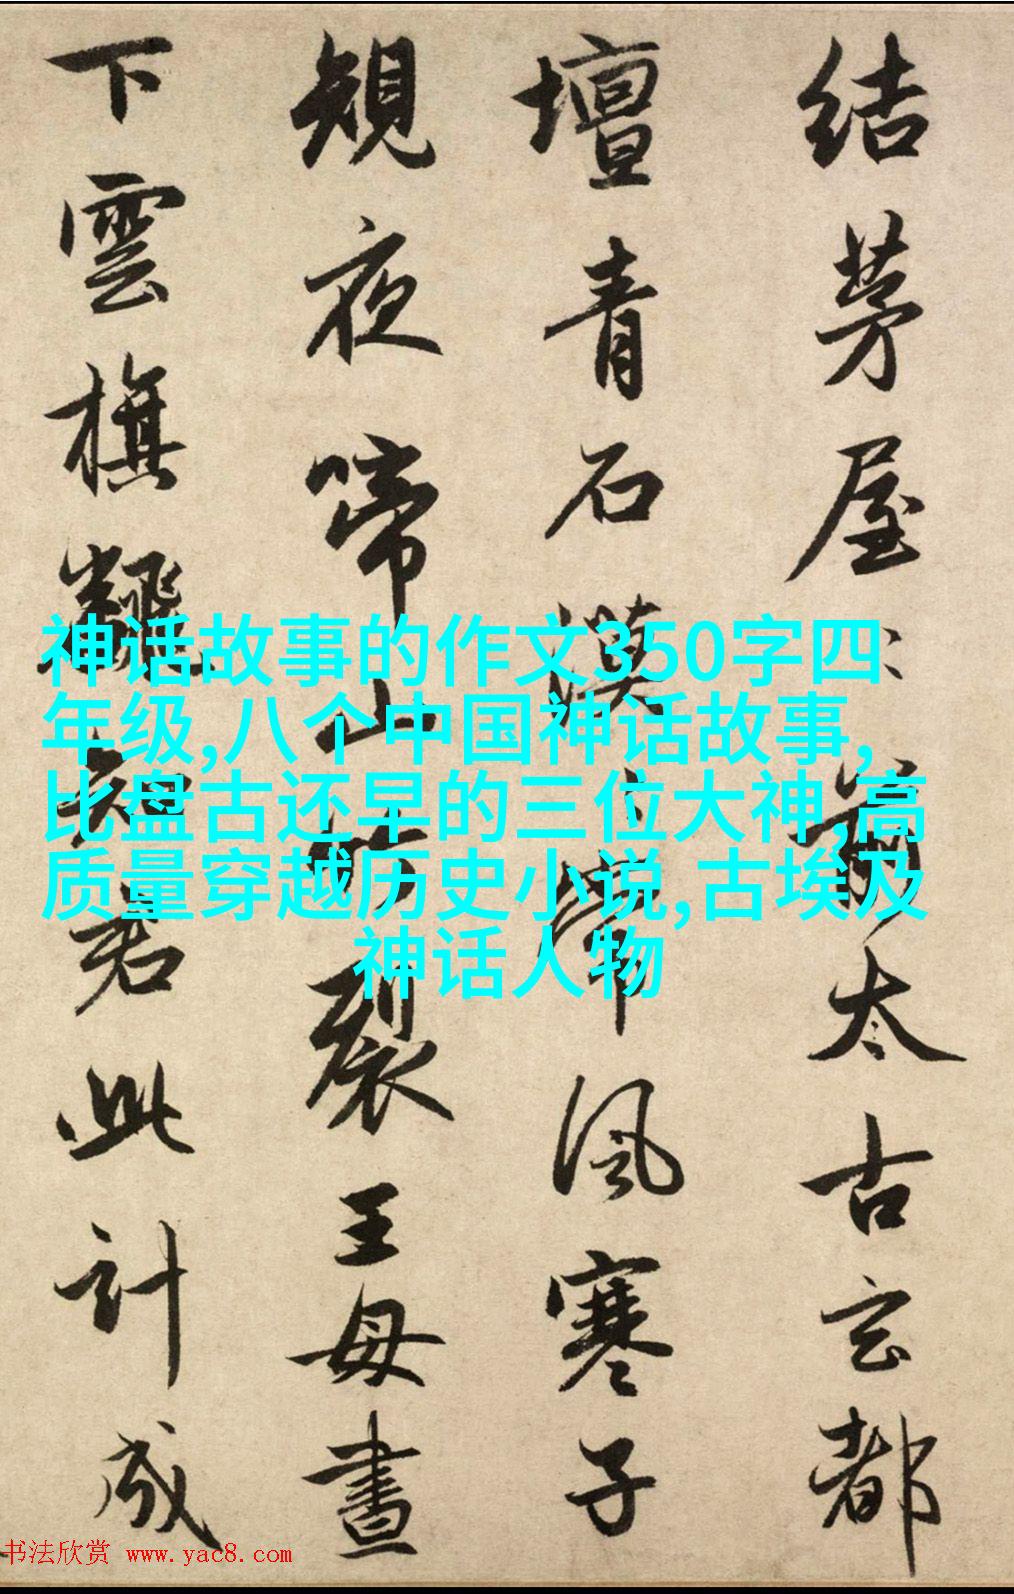 結茅屋〻前太古玄都
壇青石漠〻常風寒子
規夜啼山竹裂王母晝
下雲旗飜知君此計成
神话故事的作文350字四
年级,八个中国神话故事,
比盘古还早的三位大神,高
质量穿越历史小说,古埃及
神话人物
书法欣赏 www.yac8.com